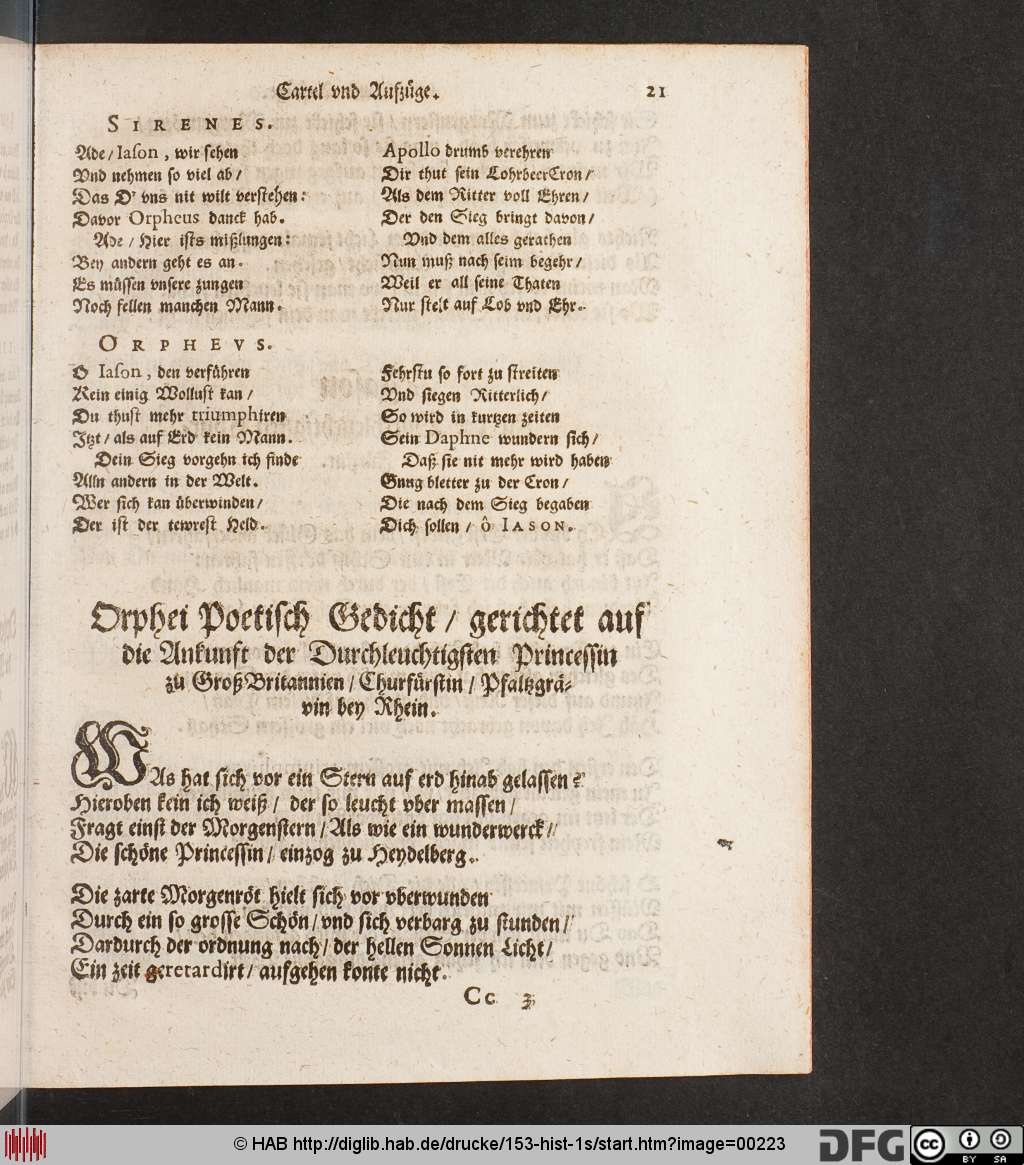 Cartel vnd Aufzüge. 21
SIRENES.
Ade / Iason, wir sehen
Vnd nehmen so viel ab /
Das Dʳ vns nit wilt verstehen:
Davor Orpheus danck hab.
Ade / Hier ists mißlungen:
Bey andern geht es an.
Es müssen vnsere zungen
Noch fellen manchen Mann.
Apollo drumb verehren
Dir thut sein LohrbeerCron /
Als dem Ritter voll Ehren /
Der den Sieg bringt davon /
Vnd dem alles gerathen
Nun muß nach seim begehr /
Weil er all seine Thaten
Nur stelt auf Lob vnd Ehr.
ORPHEVS.
O Iason, den verführen
Kein einig Wollust kan /
Du thust mehr triumphiren
Jtzt / als auf Erd kein Mann.
Dein Sieg vorgehn ich finde
Alln andern in der Welt.
Wer sich kan überwinden /
Der ist der tewrest Held.
Fehrstu so fort zu streiten
Vnd siegen Ritterlich /
So wird in kurtzen zeiten
Sein Daphne wundern sich /
Daß sie nit mehr wird haben
Gnug bletter zu der Cron /
Die nach dem Sieg begaben
Dich sollen / ô IASON.
Orphei Poetisch Gedicht / gerichtet auf
die Ankunft der Durchleuchtigsten Princessin
zu GroßBritannien / Churfürstin / Pfaltzgrä-
vin bey Rhein.
WAs hat sich vor ein Stern auf erd hinab gelassen?
Hieroben kein ich weiß / der so leucht vber massen /
Fragt einst der Morgenstern / Als wie ein wunderwerck /
Die schöne Princessin / einzog zu Heydelberg.
Die zarte Morgenröt hielt sich vor vberwunden
Durch ein so grosse Schön / vnd sich verbarg zu stunden /
Dardurch der ordnung nach / der hellen Sonnen Licht /
Ein zeit geretardirt / aufgehen konte nicht.
Cc 3
© HAB http://diglib.hab.de/drucke/153-hist-1s/start.htm?image=00223
DFG
cc BY SA